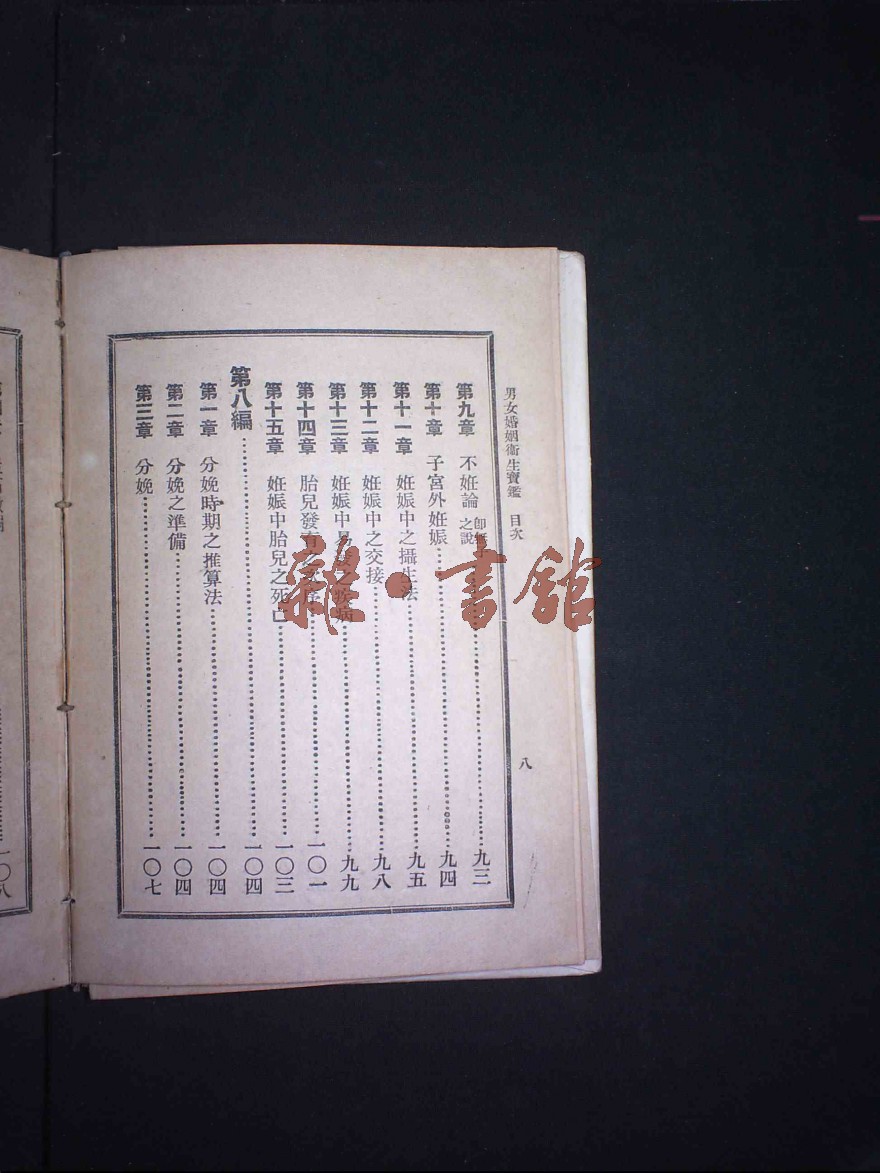 男女婚姻衞生寶鑑 目次 八
第九章 不姙論 之說 九三
第十章 子宮外姙娠 九四
第十一章 姙娠中之攝生法 九五
第十二章 姙娠中之交接 九八
第十三章 姙娠中易 之疾病 九九
第十四章 胎兒發育之 序 一〇一
第十五章 姙娠中胎兒之死亡 一〇三
第八編 一〇四
第一章 分娩時期之推算法 一〇四
第二章 分娩之準備 一〇四
第三章 分娩 一〇七
一〇八
雜·書館